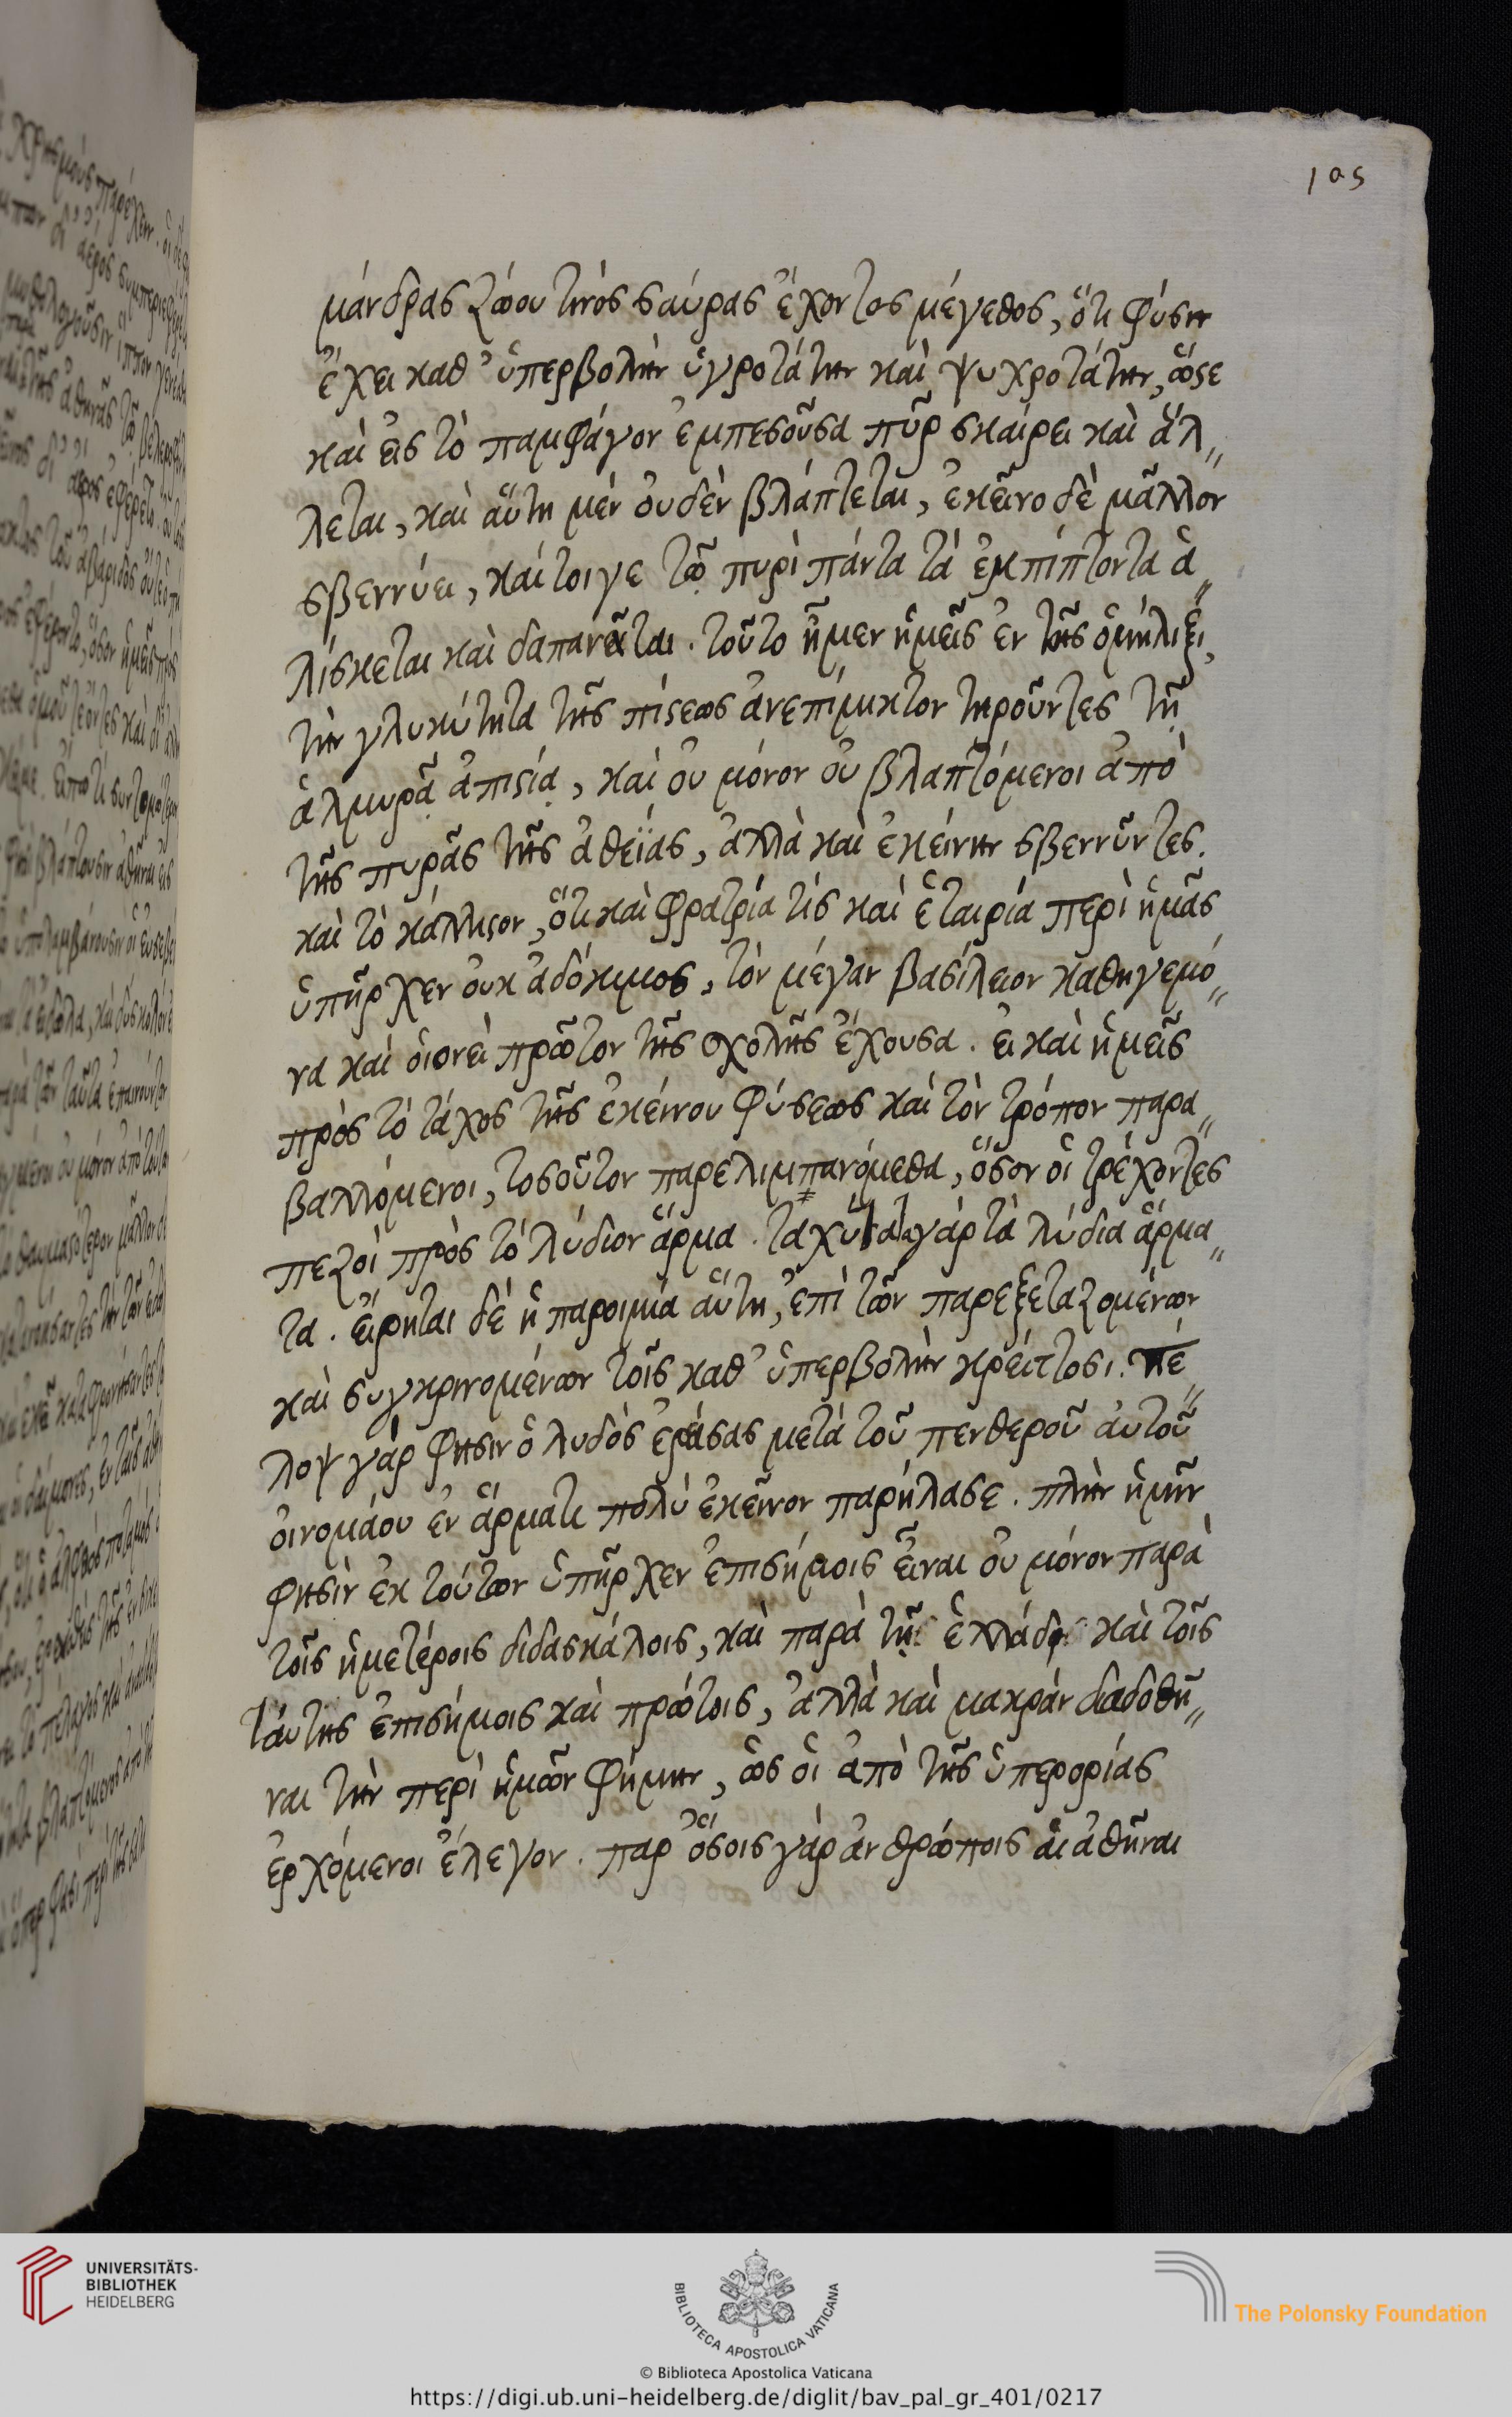 105
μάνδρας ζώου τινὸς σαύρας ἔχοντος μέγεθος, ὅτι φύσιν
ἔχει καθ' ὑπερβολὴν ὑγροτάτην καὶ ψυχροτάτην, ὥστε
καὶ εἰς τὸ παμφάγον ἐμπεσοῦσα πῦρ σκαίρει καὶ ἅλ„
λεται, καὶ αὕτη μὲν οὐδὲν βλάπτεται, ἐκεῖνο δὲ μᾶλλον
σβεννύει, καίτοιγε τῷ πυρὶ πάντα τὰ ἐμπίπτοντα ἁ„
λίσκεται καὶ δαπανᾶται. τοῦτο ἦμεν ἡμεῖς ἐν τοῖς ὁμήλιξι,
τὴν γλυκύτητα τῆς πίστεως ἀνεπίμικτον τηροῦντες τῇ
ἁλμυρᾷ ἀπιστίᾳ, καὶ οὐ μόνον οὐ βλαπτόμενοι ἀπὸ
τῆς πυρᾶς τῆς ἀθεΐας, ἀλλὰ καὶ ἐκείνην σβεννῦντες.
καὶ τὸ κάλλιστον, ὅτι καὶ φρατρία τὶς καὶ ἑταιρία περὶ ἡμᾶς
ὑπῆρχεν οὐκ ἀδόκιμος, τὸν μέγαν βασίλειον καθηγεμό„
να καὶ οἱονεὶ πρῶτον τῆς σχολῆς ἔχουσα. εἰ καὶ ἡμεῖς
πρὸς τὸ τάχος τῆς ἐκείνου φύσεως καὶ τὸν τρόπον παρα„
βαλλόμενοι, τοσοῦτον παρελιμπανόμεθα, ὅσον οἱ τρέχοντες
πεζοὶ πρὸς τὸ λύδιον ἅρμα. ταχύτατα γὰρ τὰ λύδια ἅρμα„
τα. εἴρηται δὲ ἡ παροιμία αὕτη, ἐπὶ τῶν παρεξεταζομένων
καὶ συγκρινομένων τοῖς καθ' ὑπερβολὴν κρείττοσι. πέ„
λοψ γάρ φησιν ὁ λυδὸς ἐράσας μετὰ τοῦ πενθεροῦ αὐτοῦ
οἰνομάου ἐν ἅρματι πολὺ ἐκεῖνον παρήλασε. πλὴν ἡμῖν
φησὶν ἐκ τούτων ὑπῆρχεν ἐπισήμοις εἶναι οὐ μόνον παρὰ
τοῖς ἡμετέροις διδασκάλοις, καὶ παρὰ τῇ ἑλλάδι καὶ τοῖς
ταύτης ἐπισήμοις καὶ πρώτοις, ἀλλὰ καὶ μακρὰν διαδοθῆ„
ναι τὴν περὶ ἡμῶν φήμην, ὡς οἱ ἀπὸ τῆς ὑπερορίας
ἐρχόμενοι ἔλεγον. παρ' ὅσοις γὰρ ἀνθρώποις αἱ ἀθῆναι
UNIVERSITÄTS-
BIBLIOTHEK
HEIDELBERG
BIBLIOTECA APOSTOLICA VATICANA
The Polonsky Foundation
© Biblioteca Apostolica Vaticana
https://digi.ub.uni-heidelberg.de/diglit/bav_pal_gr_401/0217